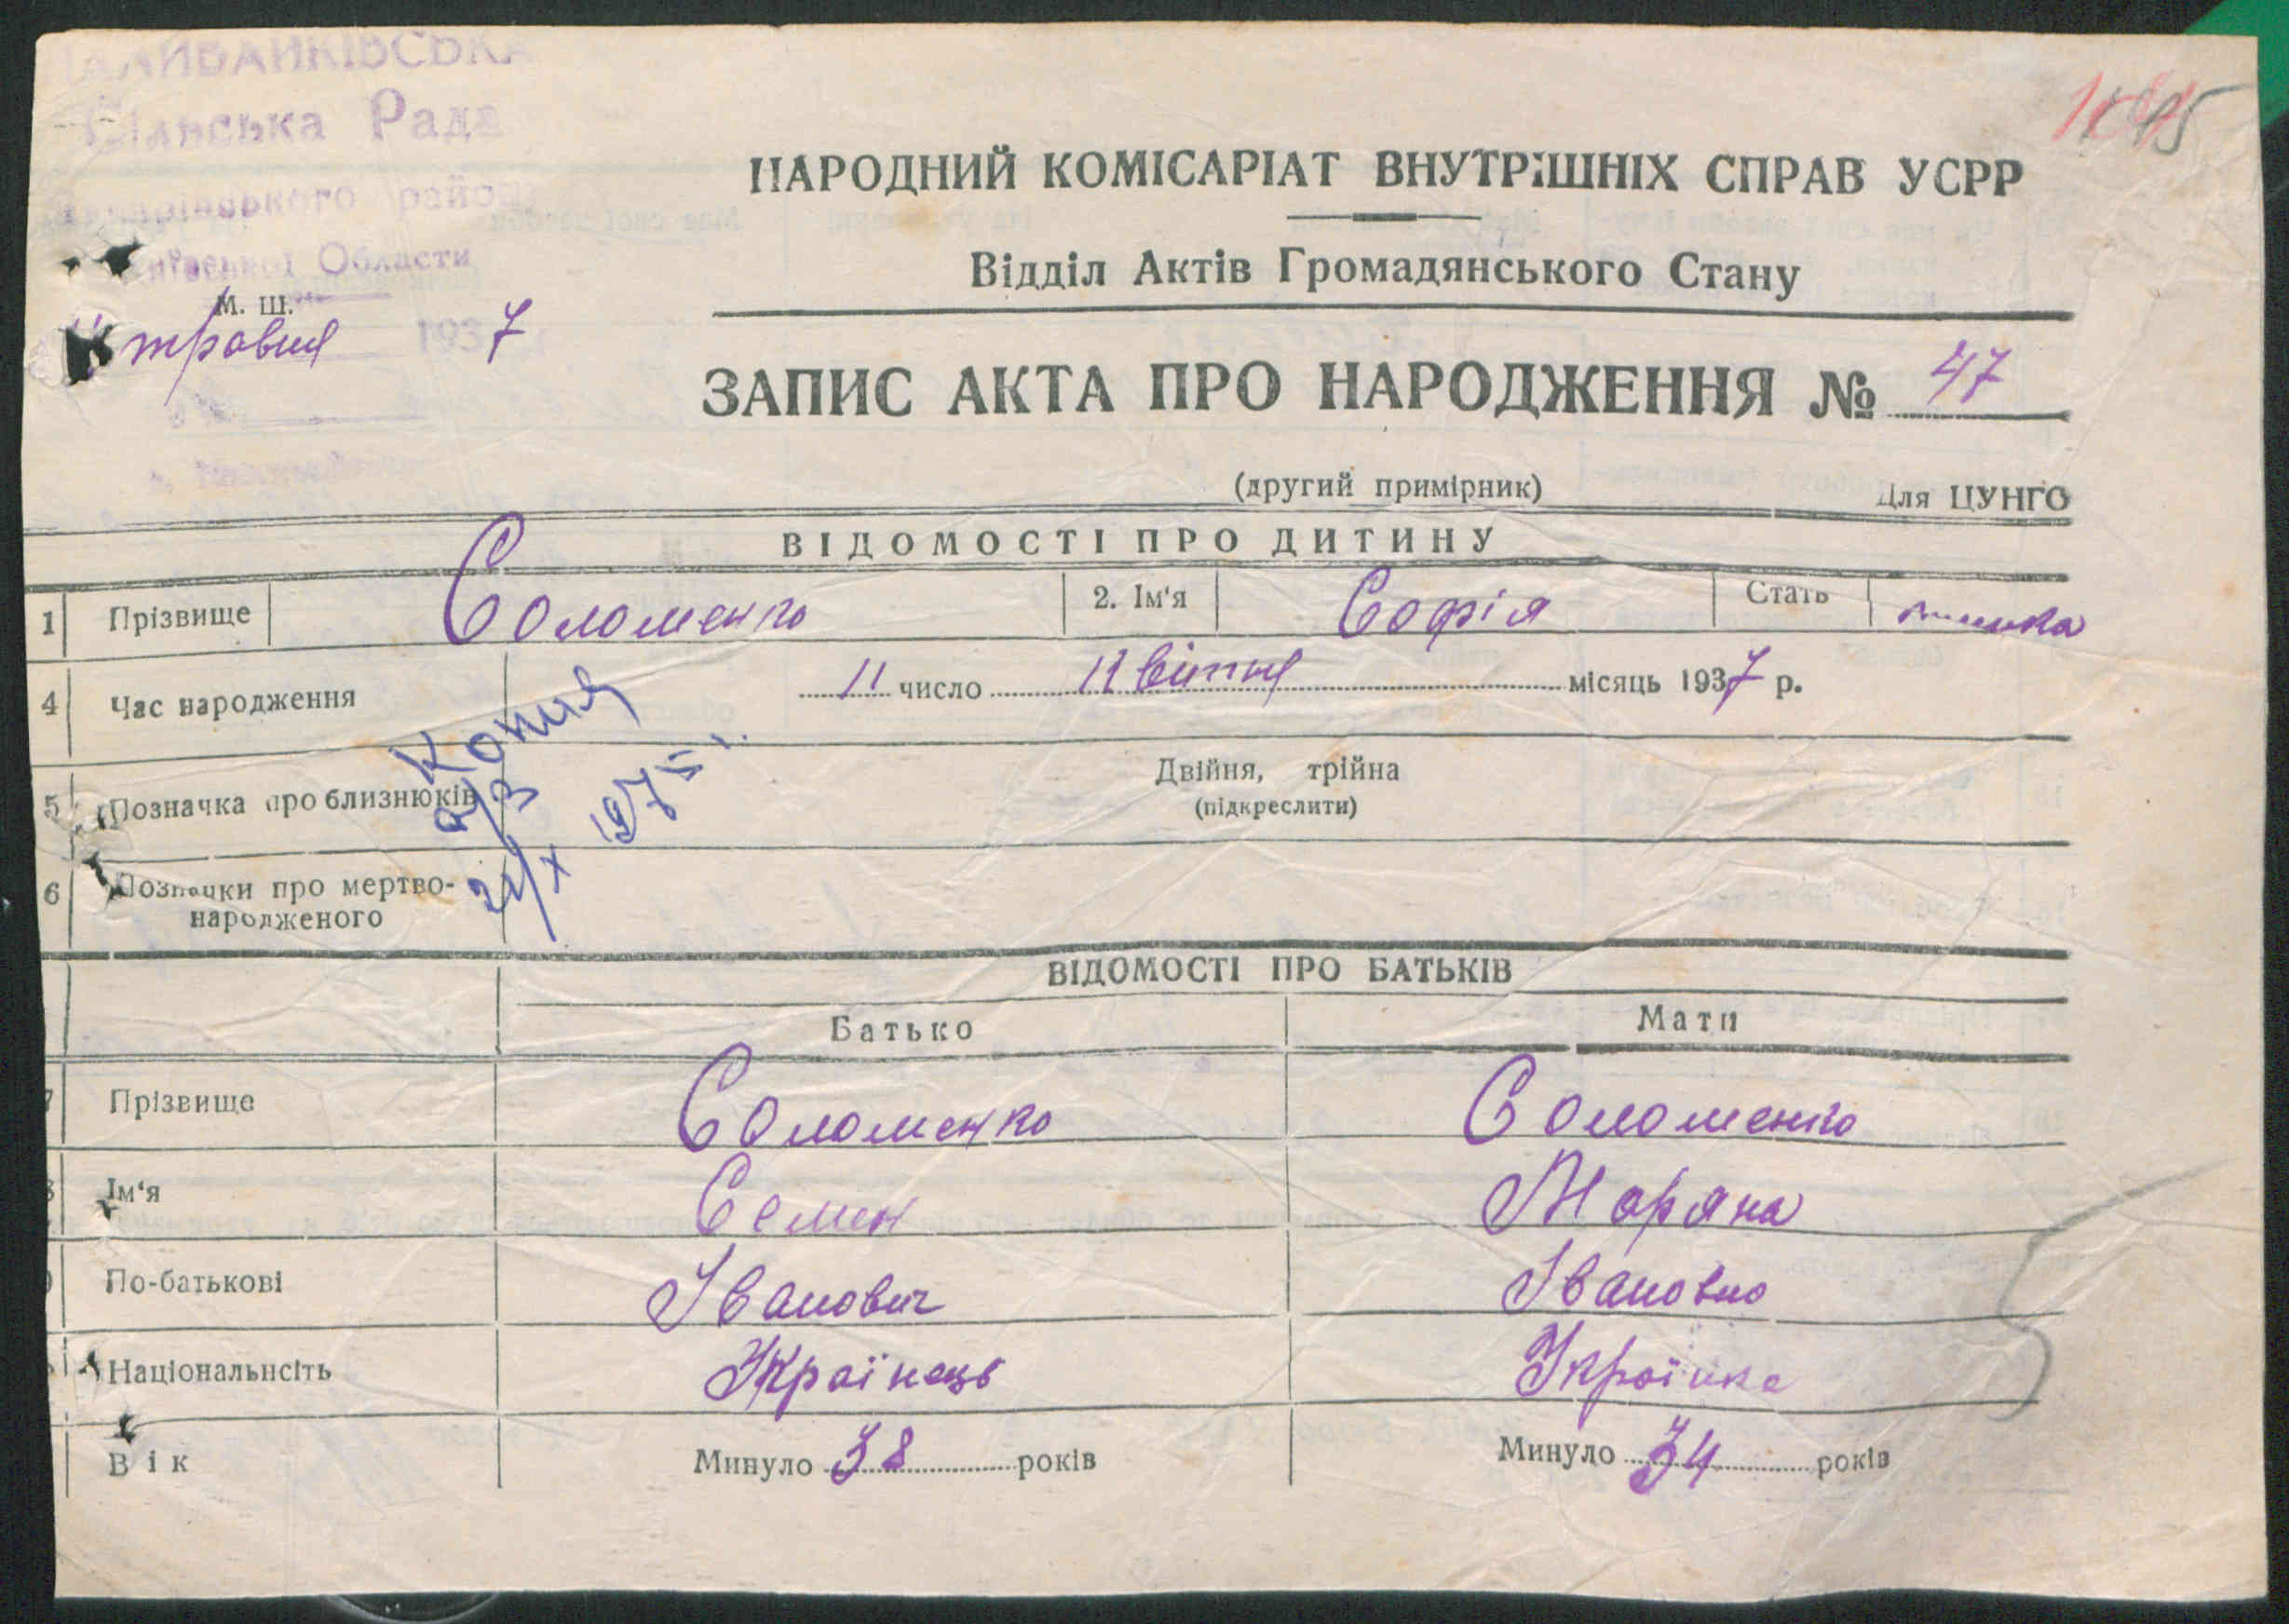 Сільська Рада
району
Київської Області
М. Ш.
травня 1937
НАРОДНИЙ КОМІСАРІАТ ВНУТРІШНІХ СПРАВ УСРР
Відділ Актів Громадянського Стану
ЗАПИС АКТА ПРО НАРОДЖЕННЯ № 47
(другий примірник) Для ЦУНГО
ВІДОМОСТІ ПРО ДИТИНУ
1 Прізвище Соломенко 2. Ім'я Софія Стать жіноча
4 Час народження 11 число Квітня місяць 1937 р.
5 Позначка про близнюків Двійня, трійна
(підкреслити)
6 Позначки про мертво-
народженого
Копия
22/X 1975 г.
ВІДОМОСТІ ПРО БАТЬКІВ
Батько Мати
Прізвище Соломенко Соломенко
Ім'я Семен Маряна
По-батькові Іванович Івановна
Національнсіть Українець Українка
Вік Минуло 38 років Минуло 34 років